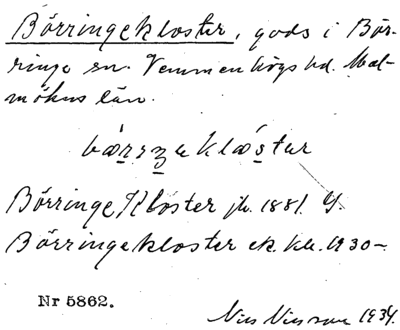 Börringekloster, gods i Bör-
ringe sn. Vemmenhögs hd. Mal-
möhus län.
Börringe Kloster jb. 1881. G.
Börringekloster ek. kb. 1930-
Nr 5862.
Nils Nilsson 1934.